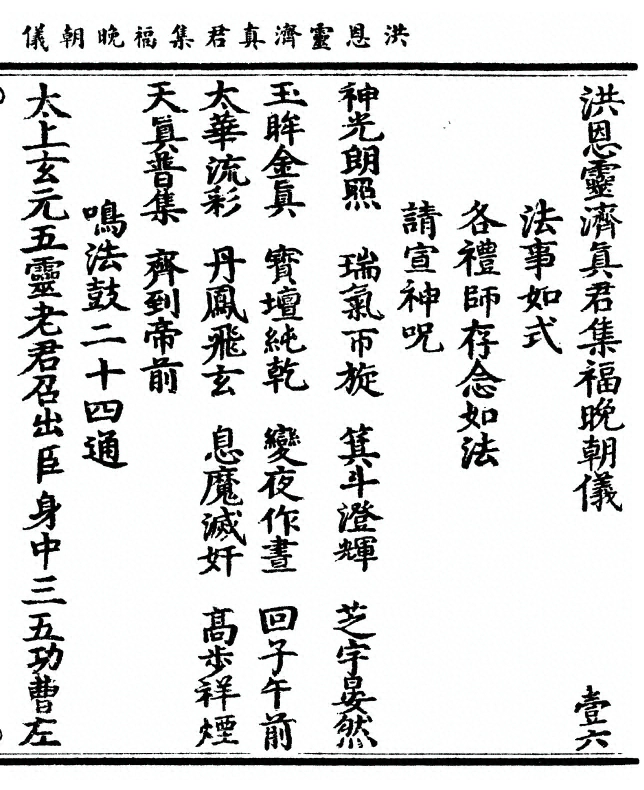 洪恩靈濟真君集福晚朝儀
洪恩靈濟眞君集福晚朝儀 壹六
法事如式
各禮師存念如法
請宣神呪
神光朗照 瑞氣帀旋 箕斗澄輝 芝宇晏然
玉眸金眞 寳壇純乾 變夜作晝 回子午前
太華流彩 丹鳳飛玄 息魔滅奸 高步祥煙
天眞普集 齊到帝前
鳴法鼓二十四通
太上玄元五靈老君召出臣身中三五功曹左